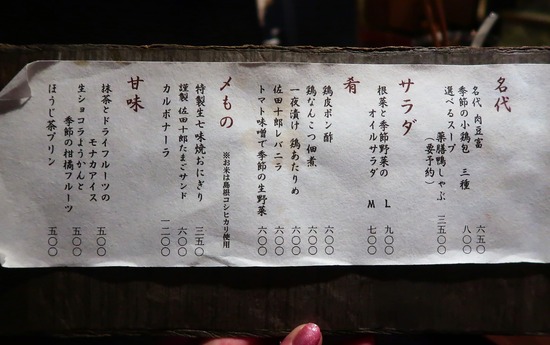 名代
名代 肉豆富 六五〇
季節の小鶏包 三種 八〇〇
選べるスープ
薬膳鴨しゃぶ 三五〇〇
(要予約)
サラダ
根菜と季節野菜の L 九〇〇
オイルサラダ M 七〇〇
肴
鶏皮ポン酢 六〇〇
鶏なんこつ 佃煮 六〇〇
一夜漬け 鶏あたりめ 六〇〇
佐田十郎レバニラ 六〇〇
トマト味噌で季節の生野菜 六〇〇
〆もの ※お米は島根コシヒカリ使用
特製生七味焼おにぎり 三五〇
謹製 佐田十郎たまごサンド 六〇〇
カルボナーラ 一二〇〇
甘味
抹茶とドライフルーツの
モナカアイス 五〇〇
生ショコラようかんと
季節の柑橘フルーツ 五〇〇
ほうじ茶プリン 五〇〇